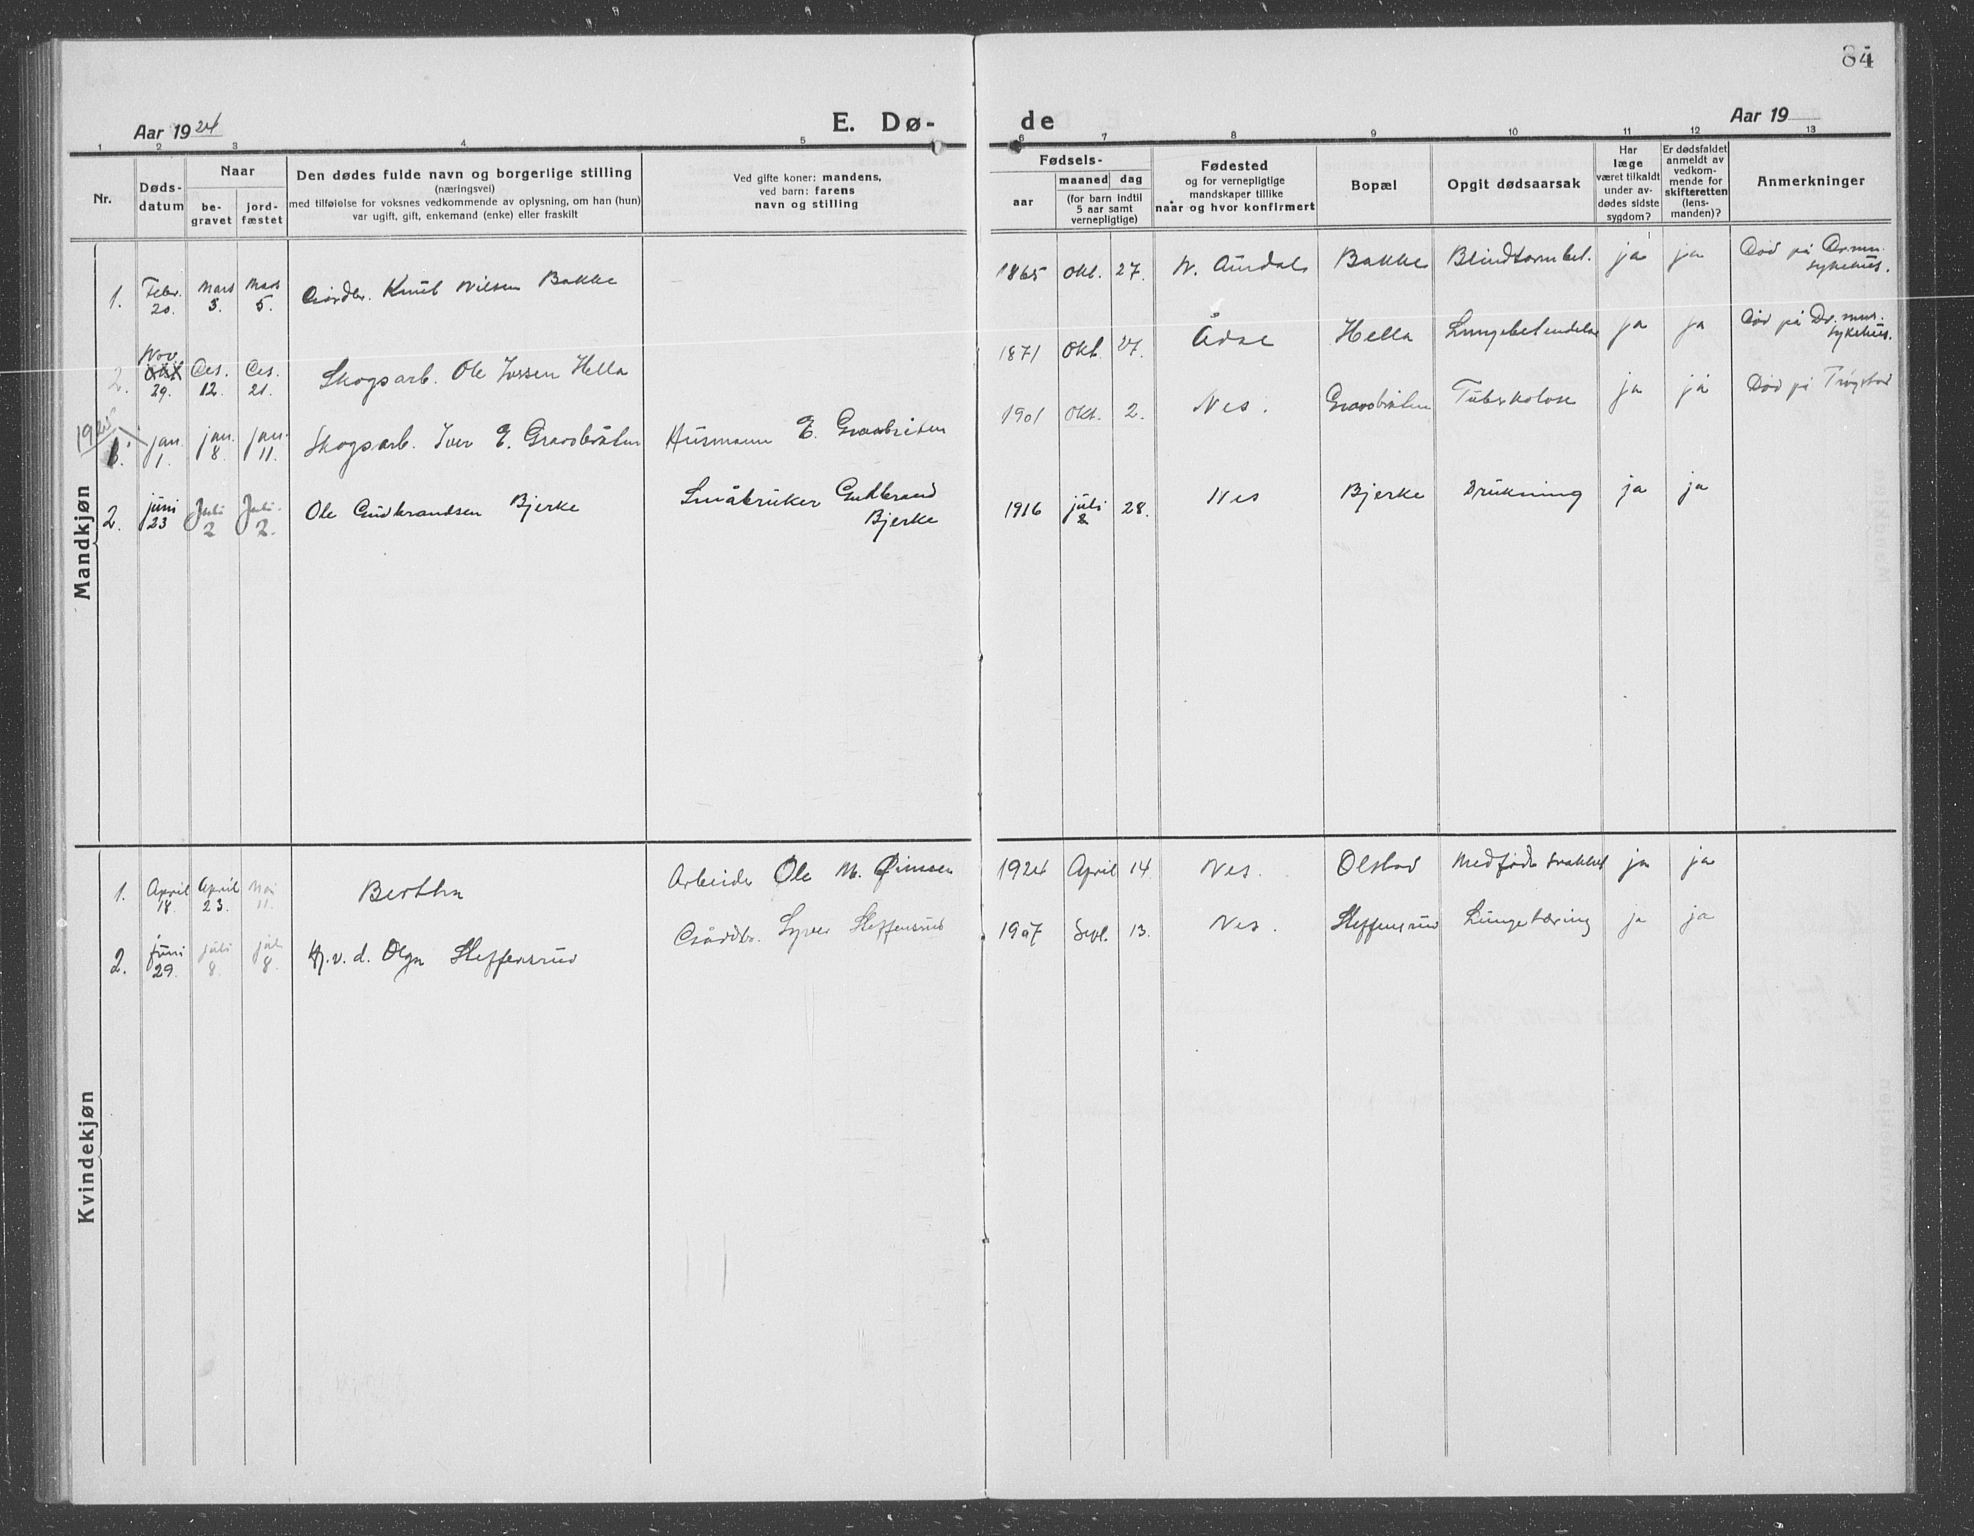 84
Aar 1924 E. Dø- de Aar 19
1 2 3 4 5 6 7 8 9 10 11 12 13
Nr.
Døds-
datum
Naar
be-
gravet
jord-
fæstet
Den dødes fulde navn og borgerlige stilling
(næringsvei)
med tilføielse for voksnes vedkommende av oplysning, om han (hun)
var ugift, gift, enkemand (enke) eller fraskilt
Ved gifte koner: mandens,
ved barn: farens
navn og stilling
Fødsels-
aar
maaned dag
(for barn indtil
5 aar samt
vernepligtige)
Fødested
og for vernepligtige
mandskaper tillike
naar og hvor konfirmert
Bopæl
Opgit dødsaarsak
Har
læge
været tilkaldt
under av-
dødes sidste
sygdom?
Er dødsfaldet
anmeldt av
vedkom-
mende for
skifteretten
(lens-
manden)?
Anmerkninger
Mandkjøn
1. Febr. 20. Mars 3. Mars 5. Gårdbr. Knut Nilsen Bakke 1865 Okt. 27. N. Aurdal Bakke Blindtarmbet. ja ja Død på Drmn. sykehus.
2. Nov. 29. Des. 12. Des. 21. Skogsarb. Ole Iversen Hella 1871 Okt. 27. Ådal Hella Lungebetendelse ja ja Død på Dr. mns. sykehus.
1925
1. jan. 1. jan. 8. jan. 11. Skogsarb. Iver E. Graosbråten Husmann E. Graabråten 1901 Okt. 2. Nes. Graosbråten Tuberkolose ja ja Død på Trøgstad
2. juni 23 Juli 2 Juli 2. Ole Gudbrandsen Bjerke Småbruker Gudbrand Bjerke 1916 juli 28. Nes Bjerke Drukning ja ja
Kvindekjøn
1. April 18. April 23. Mai 11. Bertha Arbeider Ole M. 1924 April 14 Nes. Olstad Medfødt svakhet ja ja
2. juni 29. juli 8. juli 8. H.v.d. Olga Steffensrud Gårdbr. Syver Steffensrud 1907 Sept. 13. Nes. Steffensrud Lungetæring ja ja